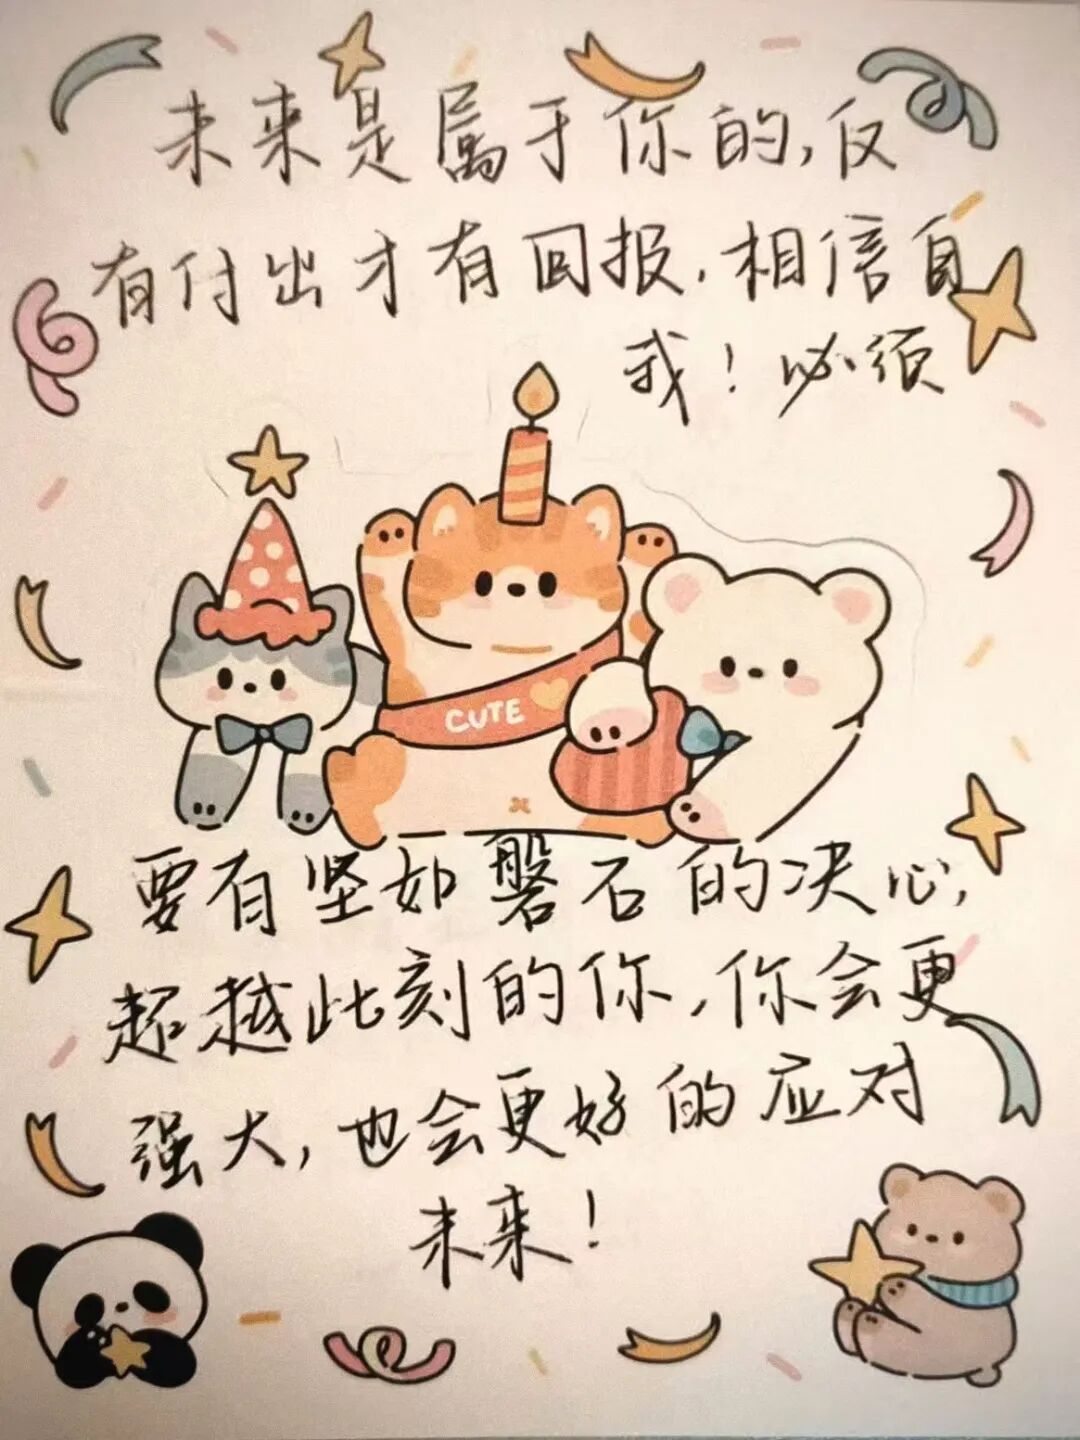 未来是属于你的,仅
有付出才有回报.相信自
我!必须
CUTE
要有坚如磐石的决心,
超越此刻的你,你会更
强大,也会更好的应对
未来!